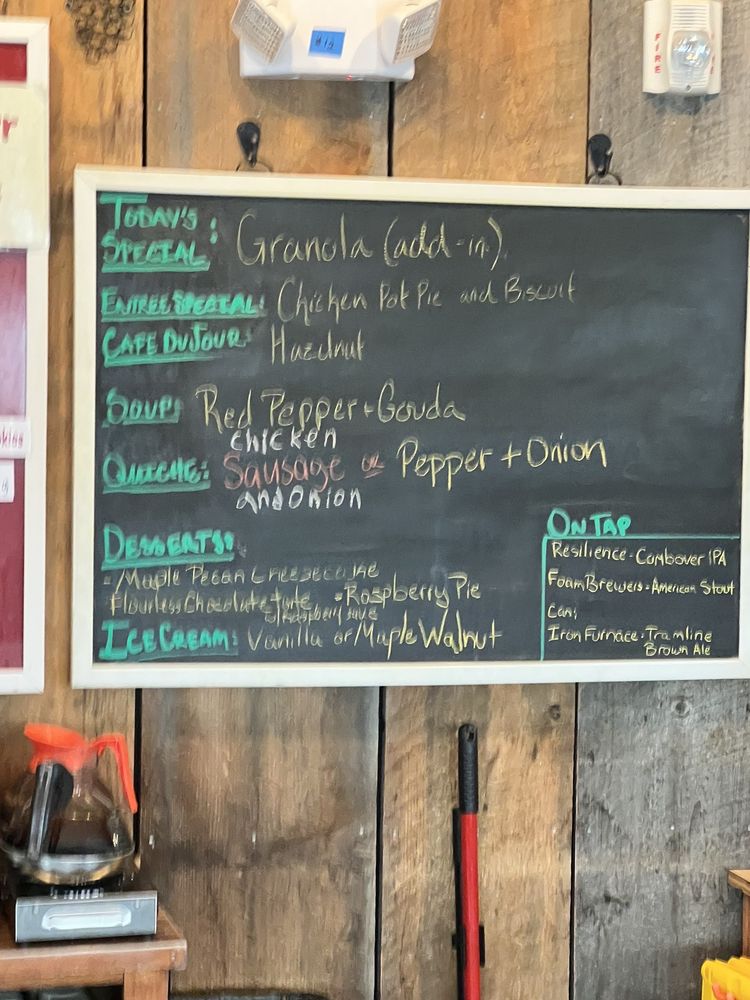 TODAY'S
SPECIAL: Granola (add-in)
ENTREE SPECIAL: Chicken Pot Pie and Biscuit
CAFE DU JOUR: Hazelnut
SOUP: Red Pepper + Gouda
CHICKEN
QUICHE: Sausage or Pepper + Onion
and Onion
DESSERTS:
- Maple Pecan Cheesecake
Flourless Chocolate - Raspberry Pie
w/ Raspberry
ICE CREAM: Vanilla or Maple Walnut
ON TAP
Resilience - Combover IPA
Foam Brewers - American Stout
Can:
Iron Furnace - Tramline
Brown Ale
FIRE